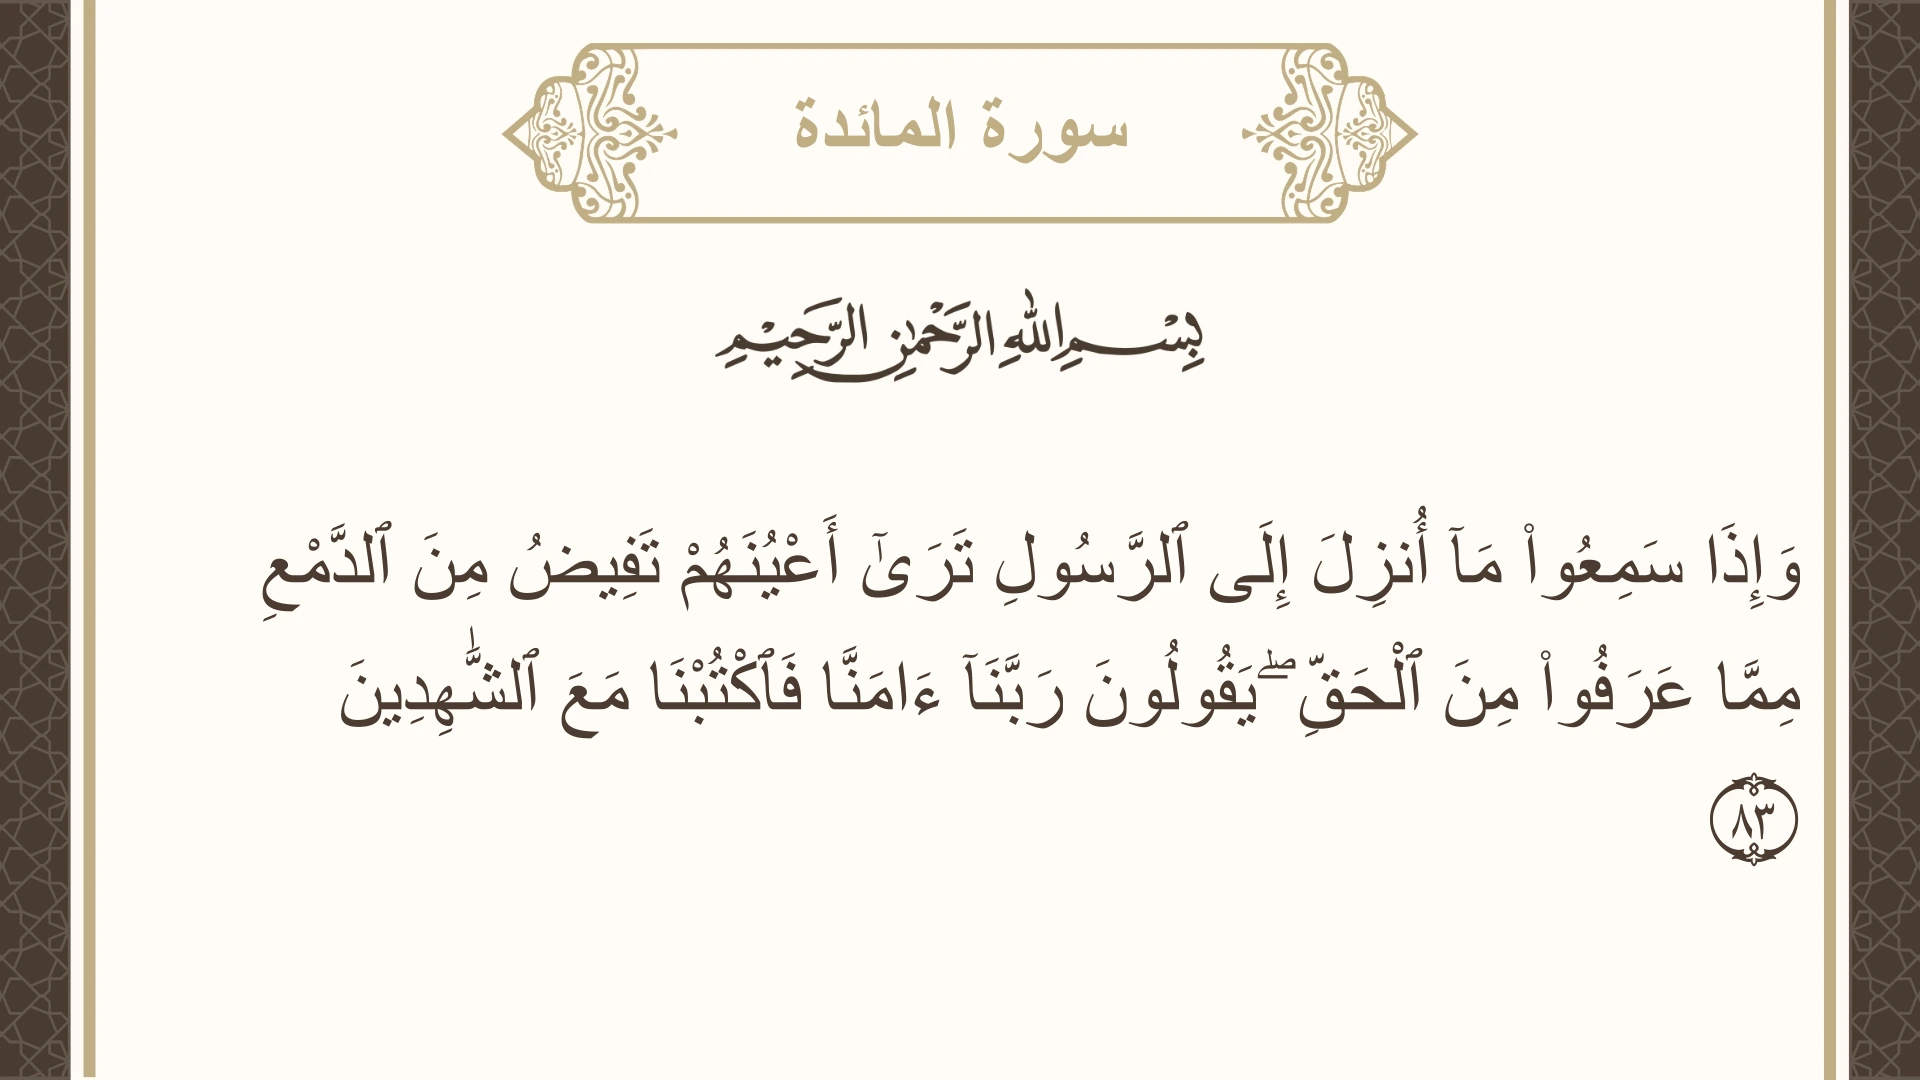 سورة المائدة
بِسْمِ اللهِ الرَّحْمٰنِ الرَّحِيْمِ
وَإِذَا سَمِعُوا۟ مَآ أُنزِلَ إِلَى ٱلرَّسُولِ تَرَىٰٓ أَعْيُنَهُمْ تَفِيضُ مِنَ ٱلدَّمْعِ
مِمَّا عَرَفُوا۟ مِنَ ٱلْحَقِّ ۖ يَقُولُونَ رَبَّنَآ ءَامَنَّا فَٱكْتُبْنَا مَعَ ٱلشَّٰهِدِينَ
٨٣